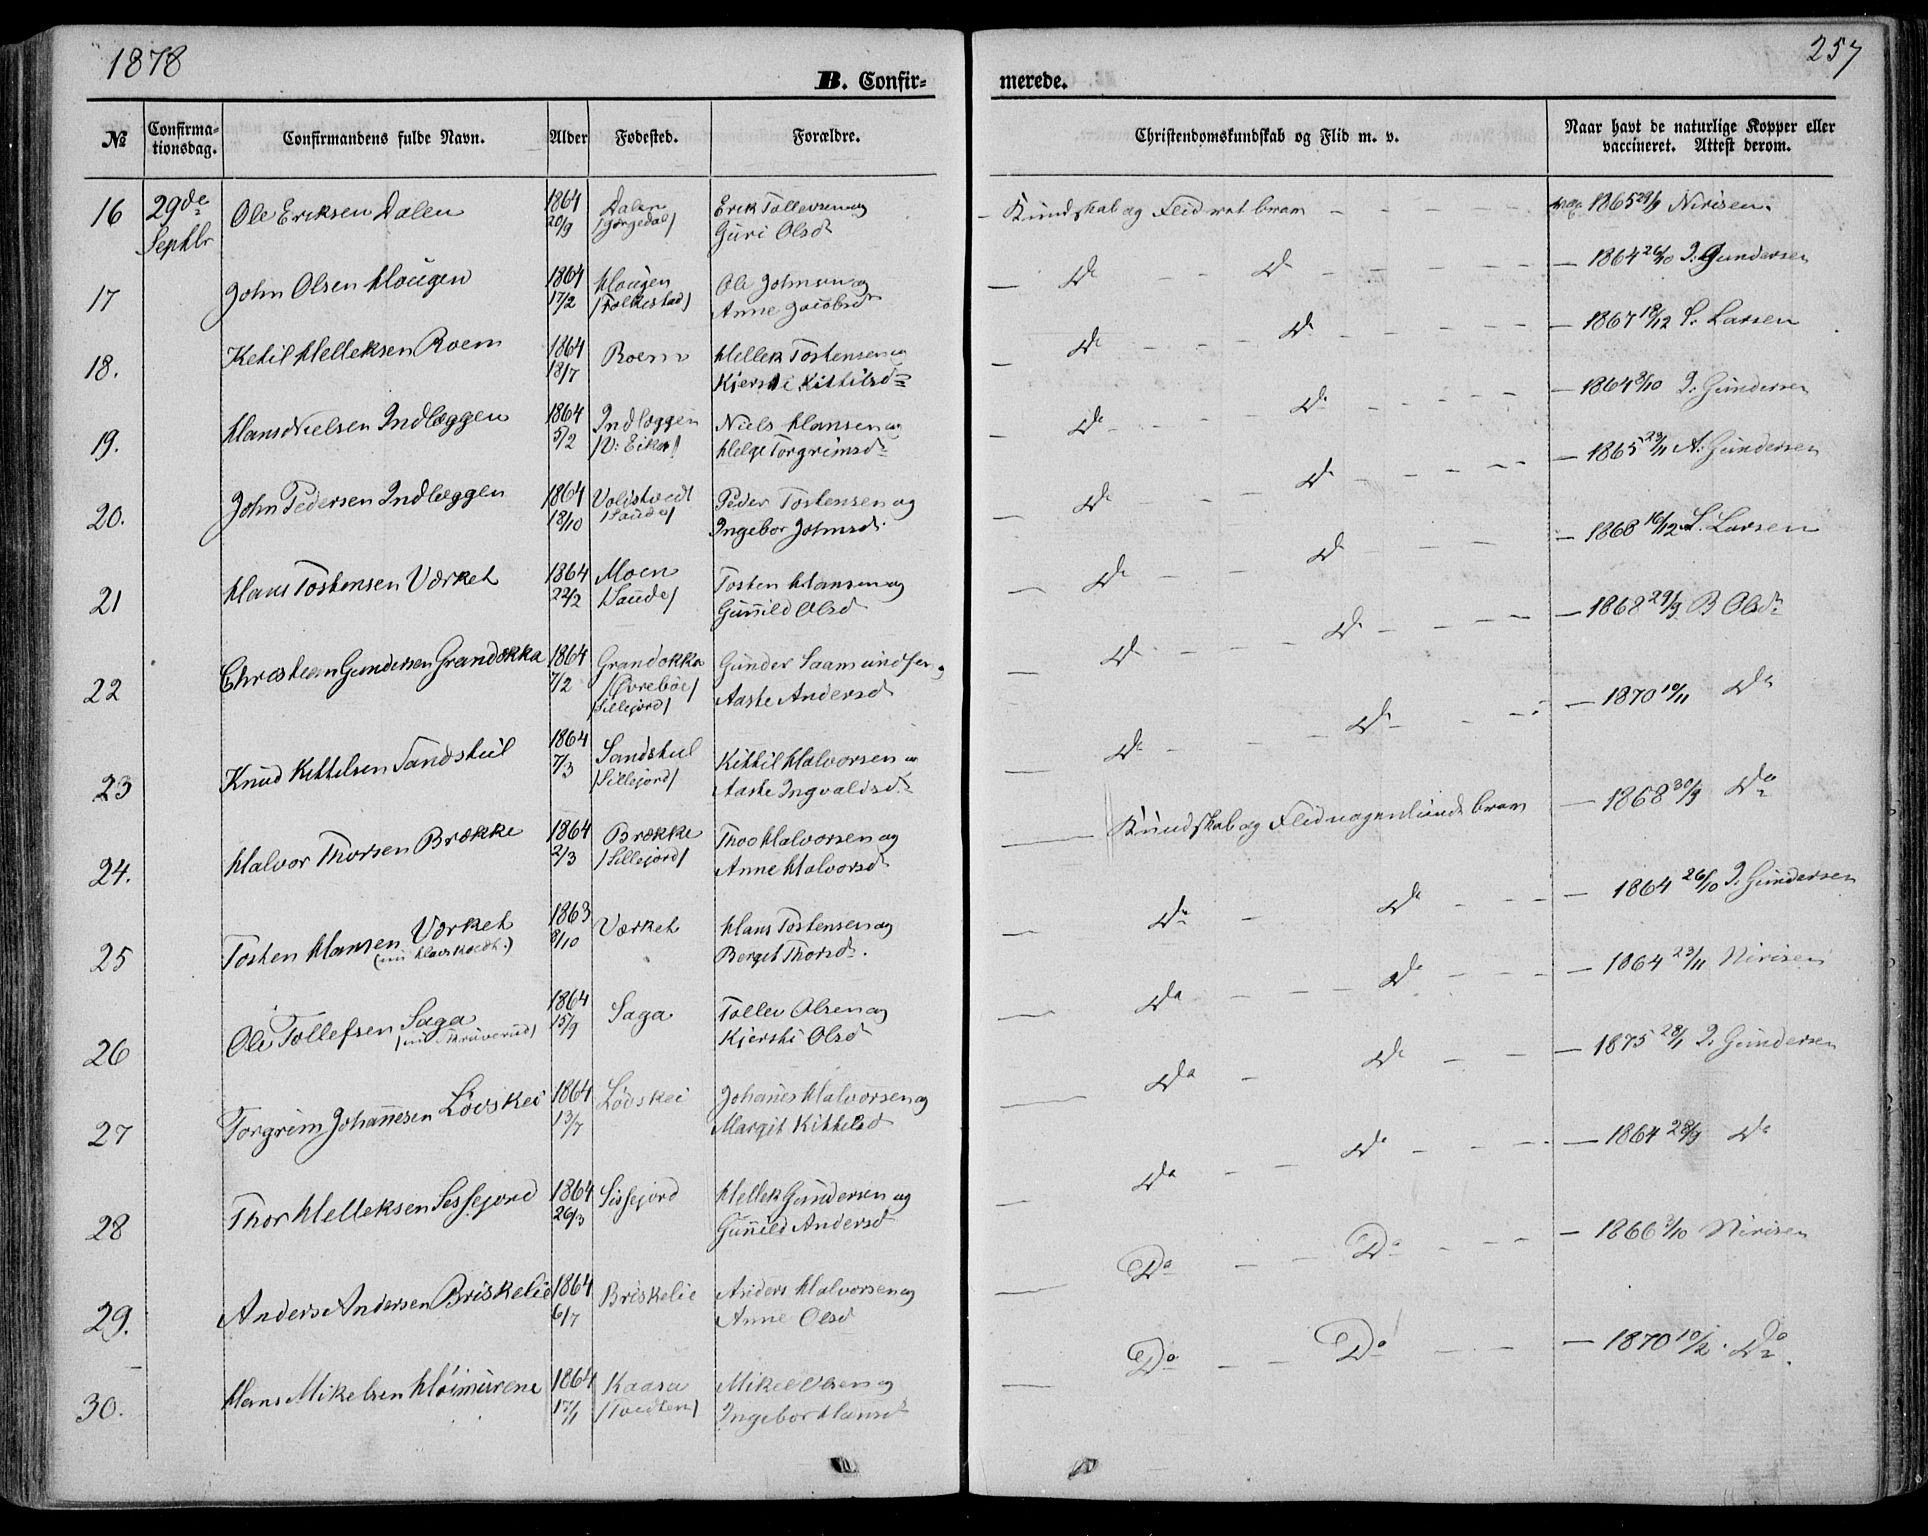 1878
257
B. Confir-
merede.
№
Confirma-
tionsdag.
Confirmandens fulde Navn.
Alder
Fødested.
Forældre.
Christendomskundskab og Flid m. v.
Naar havt de naturlige Kopper eller
vaccineret. Attest derom.
16 29de Ole Eriksen Dalen 1864 Dalen Erik Tollevsen og Kundskab og Flid mt bram 1865 29/9 Nirisen.
Septbr 20/9 /Jørgedal/ Guri Olsd
17 John Olsen Hougen 1864 Hougen Ole Johnsen og — Do — — Do — 1864 26/10 J. Gundersen
17/2 /Folkestad/ Anne Jacobsd
18. Ketil Helleksen Roem 1864 Roem Hellek Tostensen og — Do — — Do — 1867 18/12 S. Larsen
18/7 Kjersti Kittilsd
19. Hans Nielsen Indlæggen 1864 Indlæggen Niels Hansen og — Do — — Do — 1864 3/10 J. Gundersen
5/2 /V: Eika/ Helge Torgrimsd
20. John Pedersen Indlæggen 1864 Volistvedt Peder Tostensen og — Do — — Do — 1865 29/11 A. Gundersen
18/10 /Saude/ Ingebor Johnsd
21 Hans Tostensen Værket 1864 Moen Tosten Hansen og — Do — — Do — 1868 16/12 S. Larsen
22/2 /Saude/ Gunild Olsd
22 Christian Gundersen Grandokka 1864 Grandokka Gunder Saamundsen og — Do — — Do — 1868 29/9 B Olsd
7/2 /Øvrebøe/ Aaste Andersd
/Sillejord/
23 Knud Kittilsen Sandskul 1864 Sandskul Kittil Halvorsen og — Do — — Do — 1870 10/11 Do
7/3 /Sillejord/ Aaste Ingvaldsd
24. Halvor Thorsen Brække 1864 Brække Thor Halvorsen og — Kundskab og Flid nogenlunde bram — 1868 30/9 Do
2/3 /Sillejord/ Anne Halvorsd
25 Tosten Hansen Værket 1863 Værket Hans Tostensen og — Do — Do — 1864 26/10 J. Gundersen
8/10 Bergit Thorsd.
26 Ole Tollefsen Saga 1864 Saga Tollev Olsen og — Do — — Do — 1864 23/11 Nirisen
15/9 Kjersti Olsd
27 Torgrim Johannesen Lövskei 1864 Lödskei Johanes Halvorsen og — Do — Do — 1875 28/1 J. Gundersen
13/7 Margit Kittilsd
28 Thor Helleksen Sissejord 1864 Sissejord Hellek Gundersen og — Do — — Do — 1864 28/9 Do
26/3 Gunild Andersd
29. Anders Andersen Briskelie 1864 Briskelie Anders Halvorsen og — Do — — Do — 1866 3/10 Nirisen
6/7 Anne Olsd
30. Hans Mikelsen Höimyrene 1864 Kaasa Mikel Olsen og — Do — — Do — 1870 10/2 Do.
17/1 Ingebor Hansd